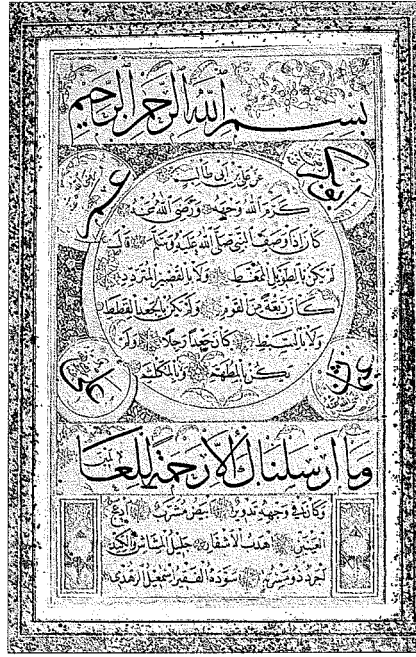 بسم الله الرحمن الرحيم
ابو بكر
عمر
عن علي بن ابي طالب
كرم الله وجهه ورضي الله عنه
كان اذا وصف النبي صلى الله عليه وسلم قال
لم يكن بالطويل الممغط ولا بالقصير المتردد
كان ربعة من القوم ولم يكن بالجعد القطط
ولا بالسبط كان جعدا رجلا ولم
يكن بالمطهم ولا بالمكلثم
وما ارسلناك الا رحمة للعالمين
وكان في وجهه تدوير ابيض مشرب ادعج
العينين اهدب الاشفار جليل المشاش والكتد
اجرد ذو مسربة سوده الفقير اسمعيل الزهدي